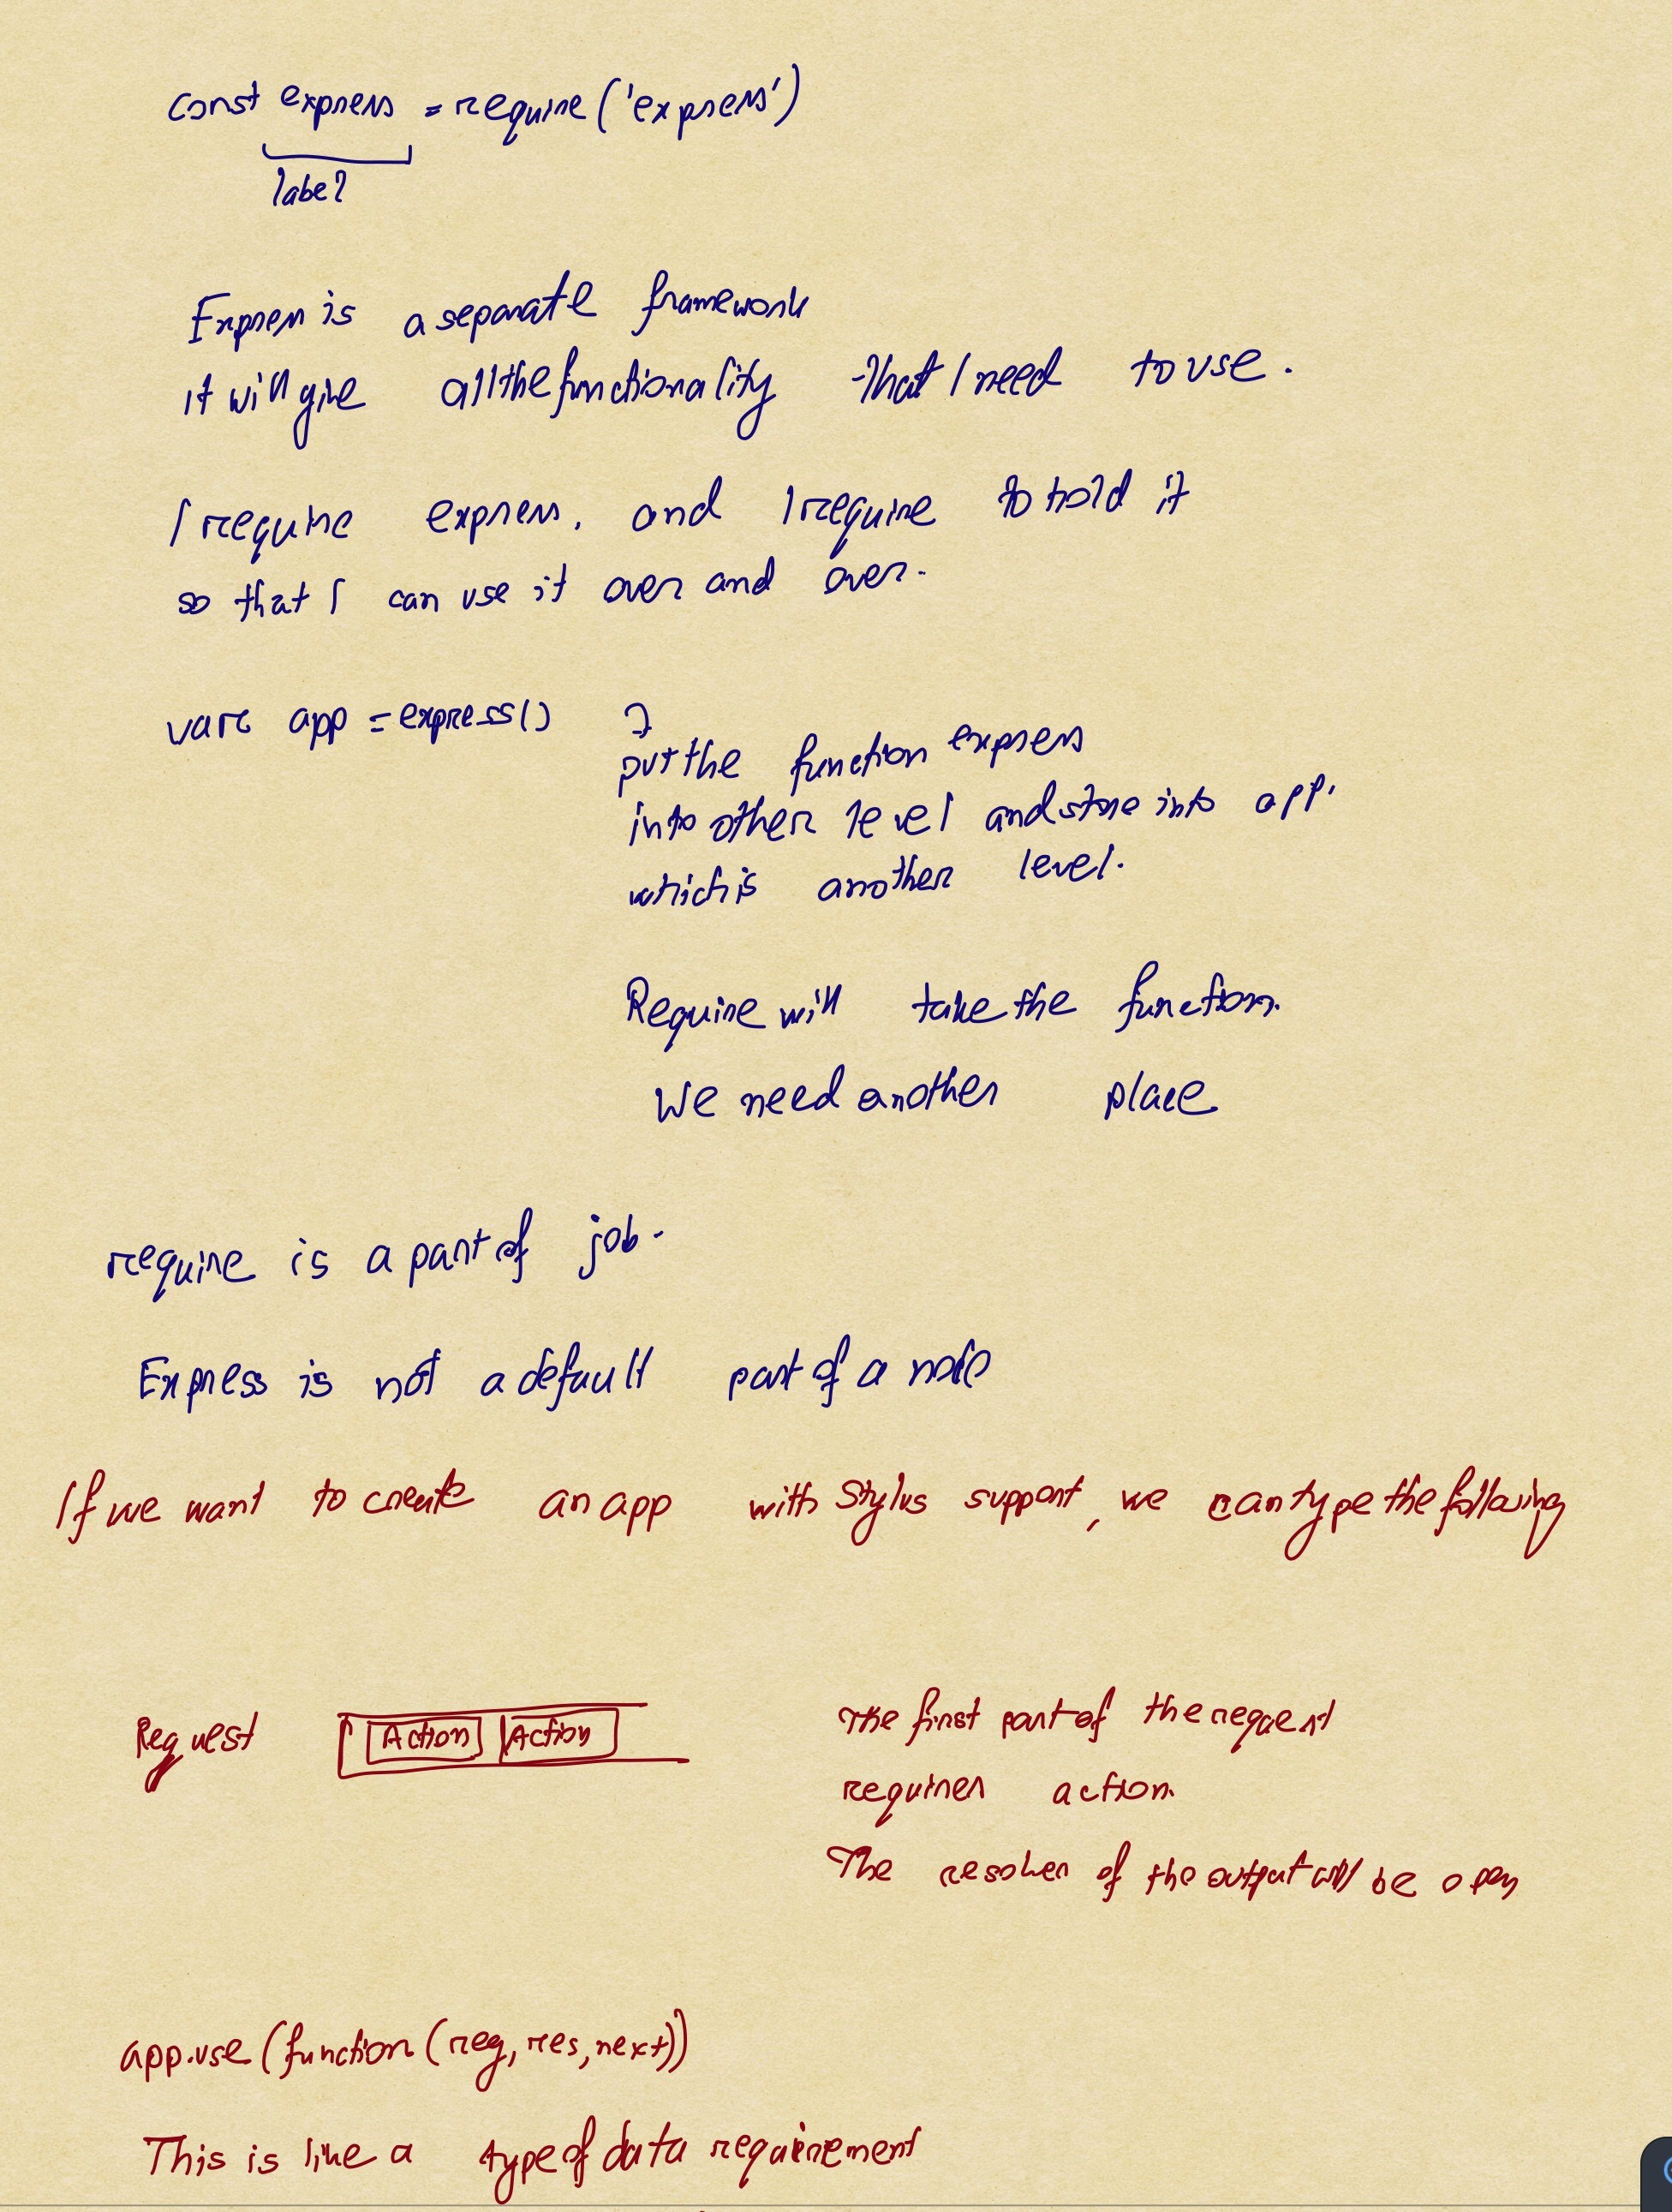 const express = require('express')
label
Express is a separate framework
it will give all the functionality that I need to use.
I require express, and I require to hold it
so that I can use it over and over.
var app = express() }
put the function express
into other level and store into app.
which is another level.
Require will take the function.
We need another place
require is a part of job.
Express is not a default part of a node
If we want to create an app with Stylus support, we can type the following
Request Action Action
The first part of the request
requires action.
The of the output will be open
app.use(function(req, res, next))
This is like a type of data requirement